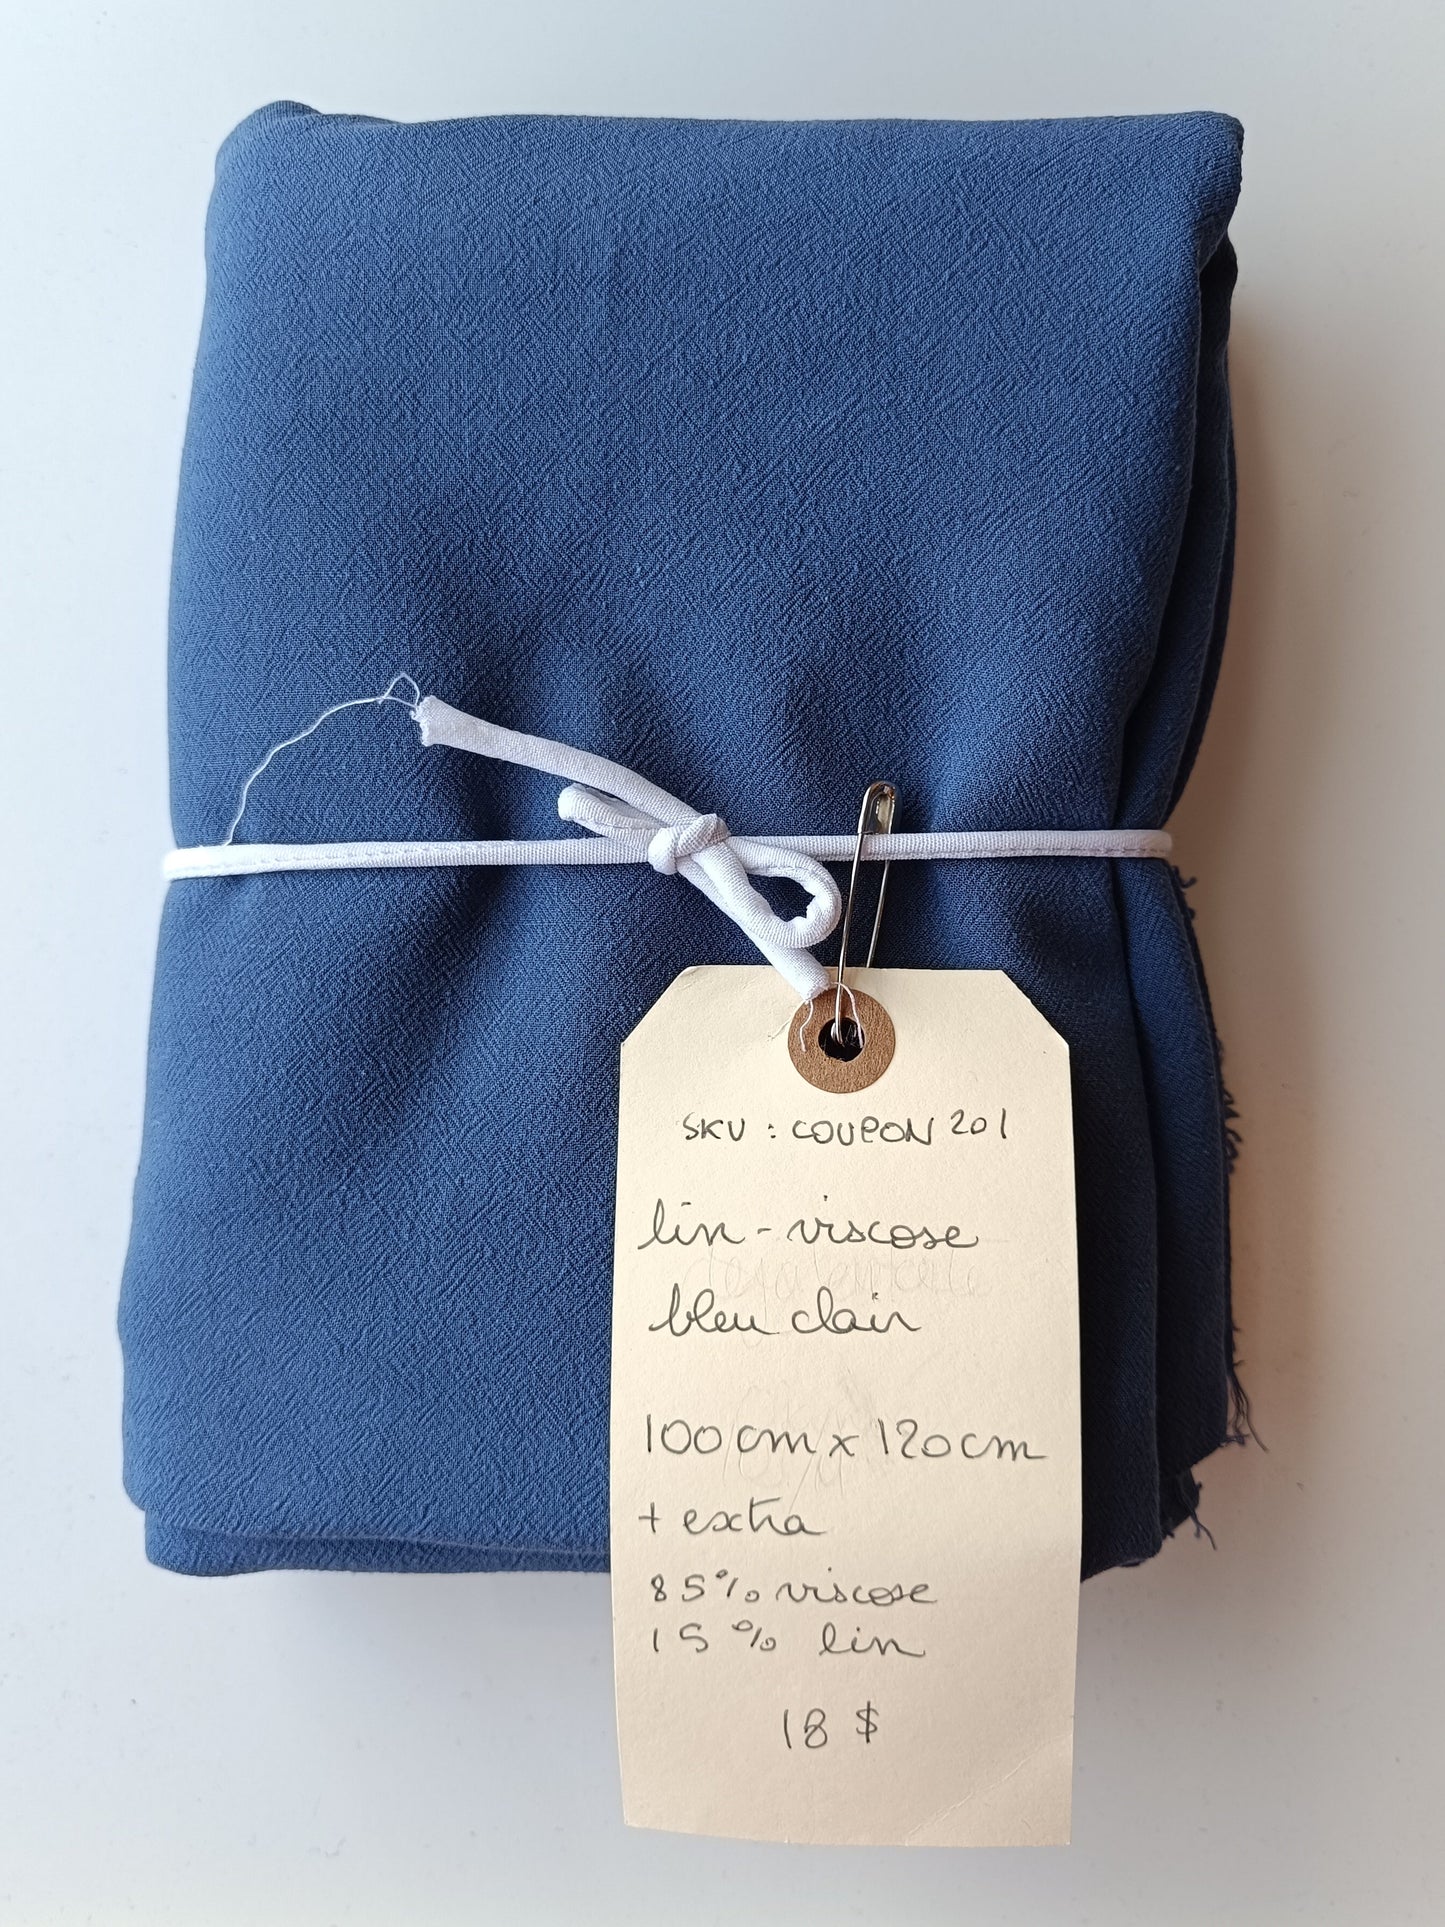 SKU : COUPON 201
lin - viscose
bleu clair
100 cm x 120 cm
+ extra
85% viscose
15 % lin
18 $